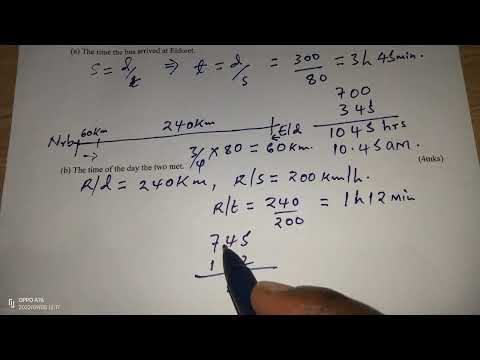 (a) The time the bus arrived at Eldoret.
S = d/t ⇒ t = d/s = 300/80 = 3h 45min.
700
345
1045 hrs
10.45am.
60km
240km
Nrb
E/d
3/4 × 80 = 60km.
(4mks)
(b) The time of the day the two met.
R/d = 240km, R/S = 200km/h.
R/t = 240/200 = 1h 12min
745
1 2
OPPO A76